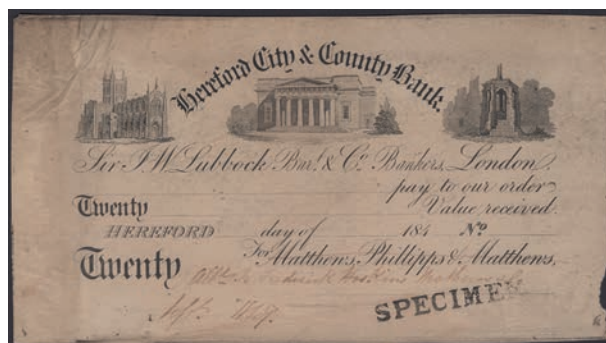 Hereford City & County Bank.
Sir J. W. Lubbock Bart. & Co. Bankers, London.
pay to our order
Twenty Value received.
HEREFORD day of 184 No
For Matthews, Phillipps & Matthews,
Twenty
SPECIMEN